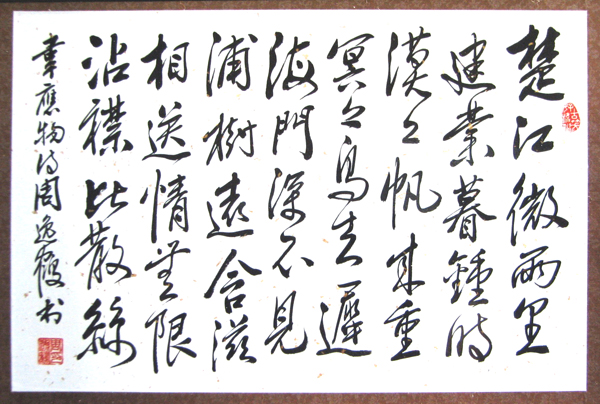 楚江微雨里
建業暮鍾時
漠々帆來重
冥々鳥去遲
海門深不見
浦樹遠含滋
相送情無限
沾襟比散絲
韋應物詩周逸書